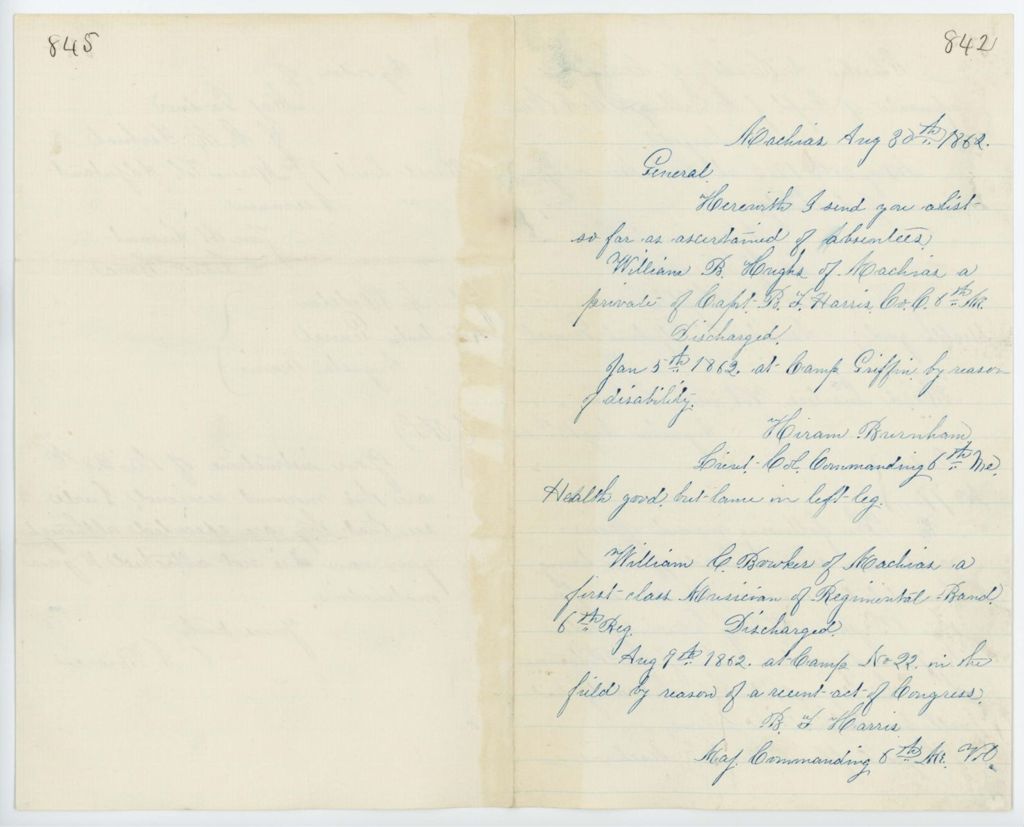 845
842
Machias Aug 30th 1862.
General.
Herewith I send you a list
so far as ascertained of absentees,
William B. Hughs of Machias a
private of Capt. B. F. Harris, Co. C. 6th Me.
Discharged.
Jan 5th 1862. at Camp Griffin by reason
of disability.
Hiram Burnham
Lieut-Col. Commanding 6th Me.
Health good, but lame in left leg.
William C. Bowker of Machias a
first class Musician of Regimental Band,
6th Reg. Discharged.
Aug 9th 1862. at Camp No 22. in the
field by reason of a recent act of Congress,
B. F. Harris
Maj. Commanding 6th Me. Vol.